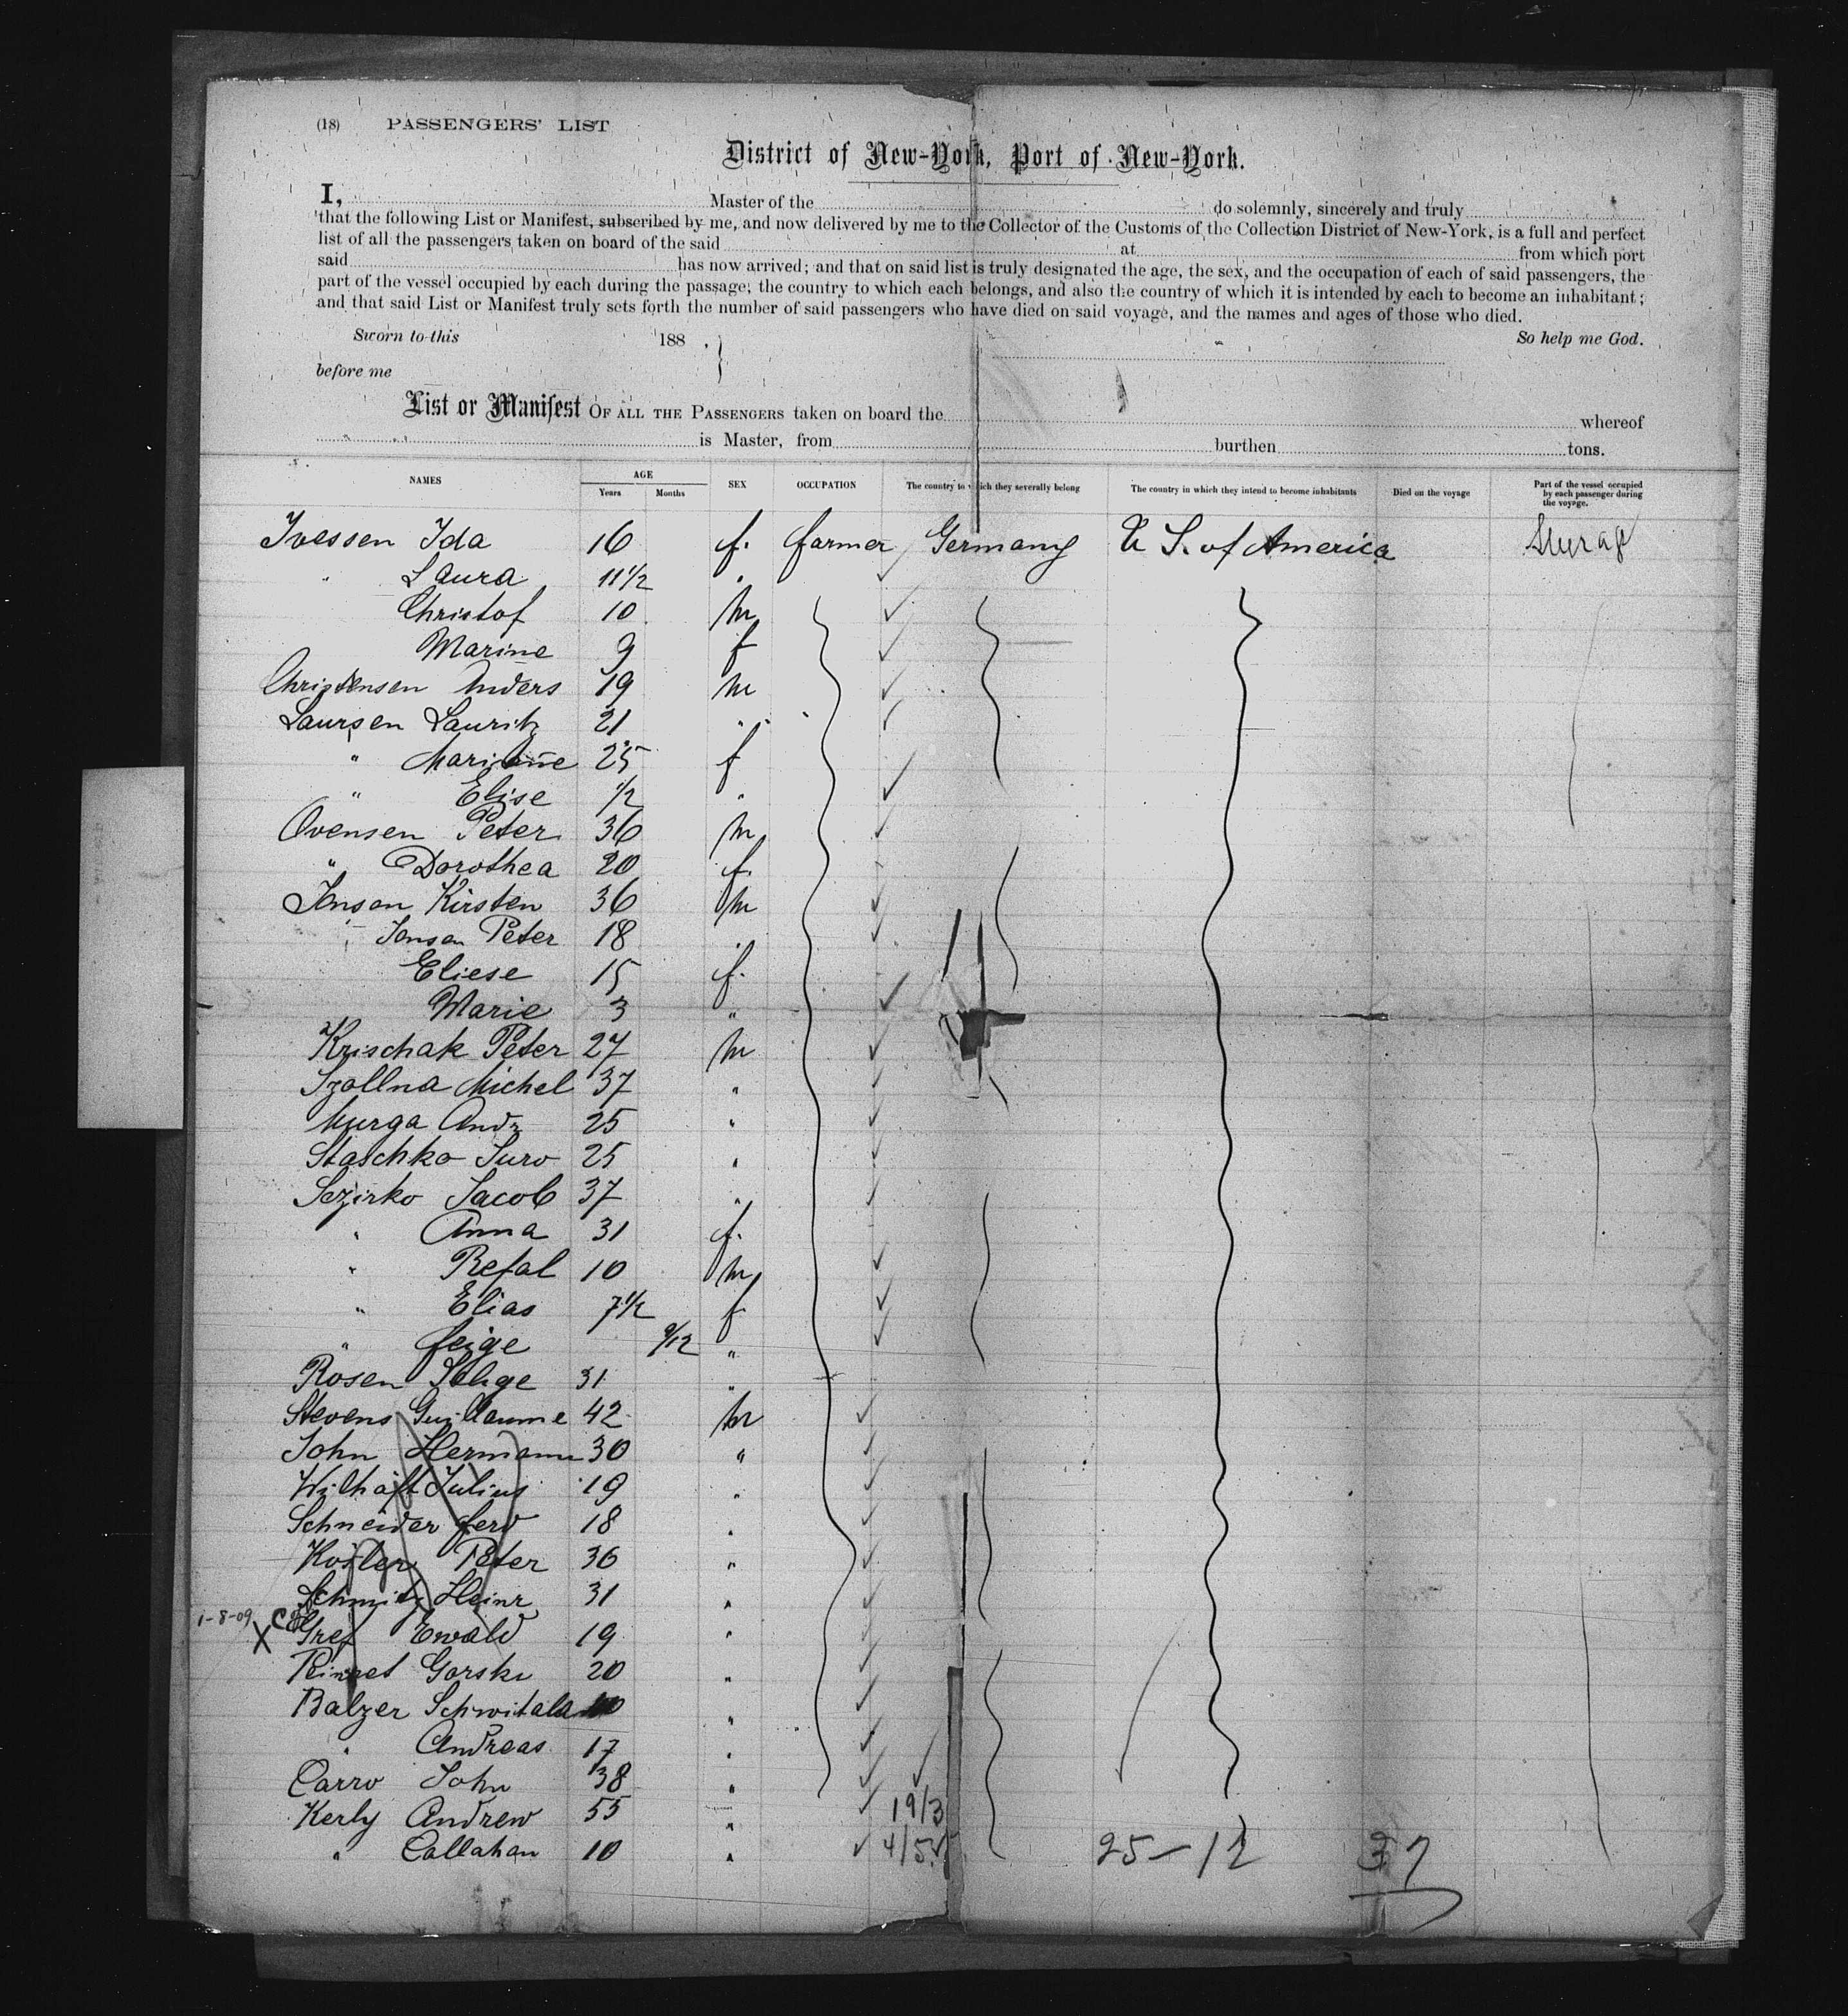 (18) PASSENGERS' LIST
District of New-York, Port of New-York.
I, Master of the do solemnly, sincerely and truly
that the following List or Manifest, subscribed by me, and now delivered by me to the Collector of the Customs of the Collection District of New-York, is a full and perfect
list of all the passengers taken on board of the said at from which port
said has now arrived; and that on said list is truly designated the age, the sex, and the occupation of each of said passengers, the
part of the vessel occupied by each during the passage; the country to which each belongs, and also the country of which it is intended by each to become an inhabitant;
and that said List or Manifest truly sets forth the number of said passengers who have died on said voyage, and the names and ages of those who died.
Sworn to this 188 . } So help me God.
before me
List or Manifest OF ALL THE PASSENGERS taken on board the whereof
is Master, from burthen tons.
NAMES AGE Years Months SEX OCCUPATION The country to which they severally belong The country in which they intend to become inhabitants Died on the voyage Part of the vessel occupied by each passenger during the voyage.
Ivessen Ida 16 f. farmer Germany U S. of America
" Laura 11 1/2 "
Christof 10 m
Marine 9 f
Christensen Anders 19 m
Laursen Lauritz 21 "
" 25 f
" Elise 1/2 "
Ovensen Peter 36 m
" Dorothea 20 f.
Jensen Kirsten 36 m
" Jensen Peter 18 "
Eliese 15 f.
Marie 3 "
Krischak Peter 27 m
Szollna Michel 37 "
Murga Andr 25 "
Staschko Juro 25 "
Sezirko Jacob 37 "
" Anna 31 f.
" Refal 10 m
" Elias 7 1/2 f
" feige 9/12 "
Rosen 31 "
Stevens Guillaume 42 m
John Hermann 30 "
Wilhaft Julius 19 "
Schneider ferd 18 "
Kosler Peter 36 "
Schmitz Heinr 31 "
1-8-09 X Gref Ewald 19 "
Gorski 20 "
Balzer Schwitala "
" Andreas 17 "
Carro John 38 "
Kerly Andrew 55 " 19/3
" Callahan 10 " 4/5 25 - 12 37